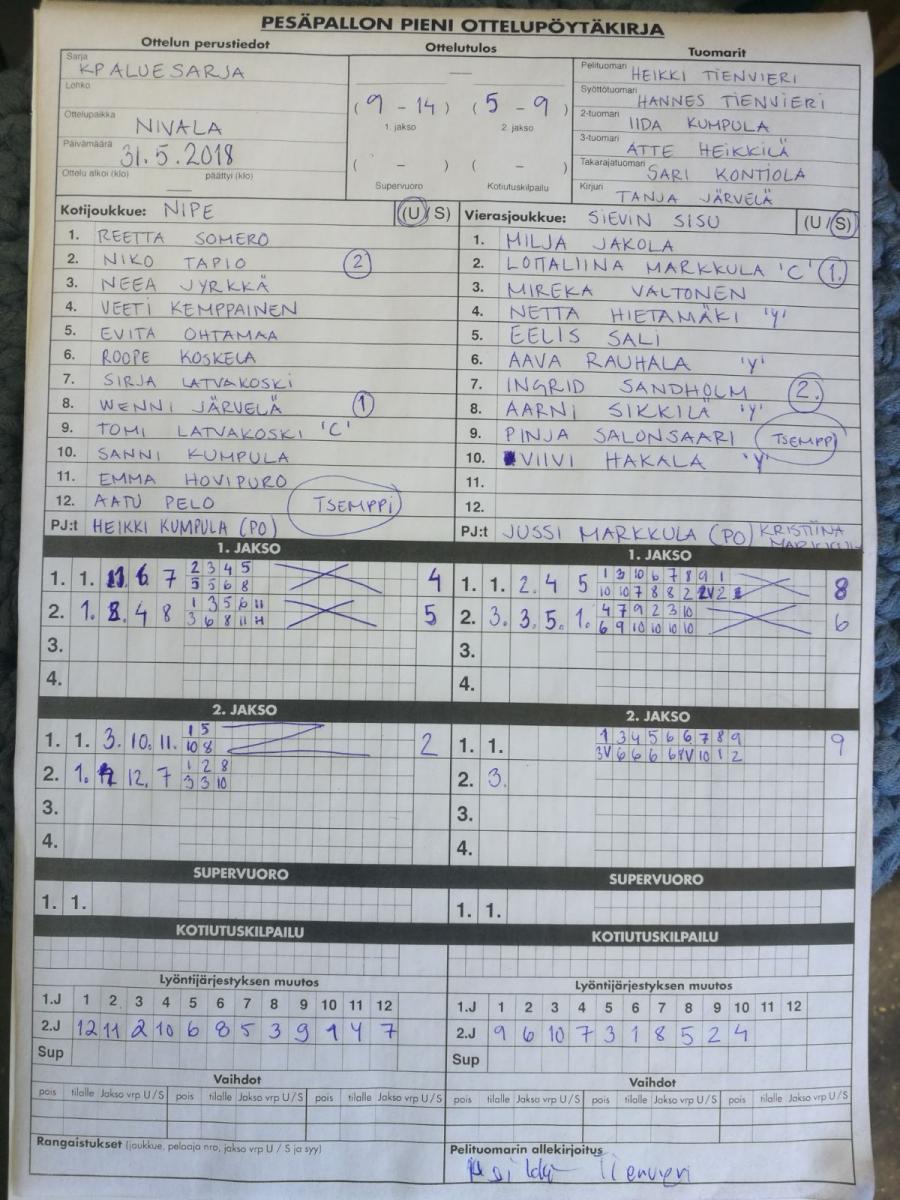 PESÄPALLON PIENI OTTELUPÖYTÄKIRJA
Ottelun perustiedot
Ottelutulos
Tuomarit
Sarja KP ALUESARJA
Lohko
Ottelupaikka NIVALA
Päivämäärä 31.5.2018
Ottelu alkoi (klo) — päättyi (klo)
—
(9 - 14) (5 - 9)
1. jakso 2. jakso
( - ) ( - )
Supervuoro Kotiutuskilpailu
Pelituomari HEIKKI TIENVIERI
Syöttötuomari HANNES TIENVIERI
2-tuomari IIDA KUMPULA
3-tuomari ATTE HEIKKILÄ
Takarajatuomari SARI KONTIOLA
Kirjuri TANJA JÄRVELÄ
Kotijoukkue: NIPE (U/S)
1. REETTA SOMERO
2. NIKO TAPIO 2
3. NEEA JYRKKÄ
4. VEETI KEMPPAINEN
5. EVITA OHTAMAA
6. ROOPE KOSKELA
7. SIRJA LATVAKOSKI
8. WENNI JÄRVELÄ 1
9. TOMI LATVAKOSKI 'C'
10. SANNI KUMPULA
11. EMMA HOVIPURO
12. AATU PELO TSEMPPI
PJ:t HEIKKI KUMPULA (PO)
Vierasjoukkue: SIEVIN SISU (U/S)
1. MILJA JAKOLA
2. LOTTALIINA MARKKULA 'C' 1.
3. MIREKA VALTONEN
4. NETTA HIETAMÄKI 'Y'
5. EELIS SALI
6. AAVA RAUHALA 'Y'
7. INGRID SANDHOLM 2.
8. AARNI SIKKILÄ 'Y'
9. PINJA SALONSAARI TSEMPPI
10. VIIVI HAKALA 'Y'
11.
12.
PJ:t JUSSI MARKKULA (PO) KRISTIINA MARKKULA
1. JAKSO
1. 1. 11. 6 7 2 3 4 5 4
5 5 6 8
2. 1. 8. 4 8 1 3 5 6 11 5
3 6 8 11 H
3.
4.
1. JAKSO
1. 1. 2. 4 5 1 3 10 6 7 8 9 1 8
10 10 7 8 8 2 2V 2
2. 3. 3. 5. 1. 4 7 9 2 3 10 6
6 9 10 10 10 10
3.
4.
2. JAKSO
1. 1. 3. 10. 11. 1 5 2
10 8
2. 1. 12. 7 1 2 8
3 3 10
3.
4.
2. JAKSO
1. 1. 1 3 4 5 6 6 7 8 9 9
3V 6 6 6 6 8V 10 1 2
2. 3.
3.
4.
SUPERVUORO
1. 1.
SUPERVUORO
1. 1.
KOTIUTUSKILPAILU
KOTIUTUSKILPAILU
Lyöntijärjestyksen muutos
1.J 1 2 3 4 5 6 7 8 9 10 11 12
2.J 12 11 2 10 6 8 5 3 9 1 4 7
Sup
Lyöntijärjestyksen muutos
1.J 1 2 3 4 5 6 7 8 9 10 11 12
2.J 9 6 10 7 3 1 8 5 2 4
Sup
Vaihdot
pois tilalle Jakso vrp U/S pois tilalle Jakso vrp U/S pois tilalle Jakso vrp U/S
Vaihdot
pois tilalle Jakso vrp U/S pois tilalle Jakso vrp U/S pois tilalle Jakso vrp U/S
Rangaistukset (joukkue, pelaaja nro, jakso vrp U / S ja syy)
Pelituomarin allekirjoitus
Tienvieri